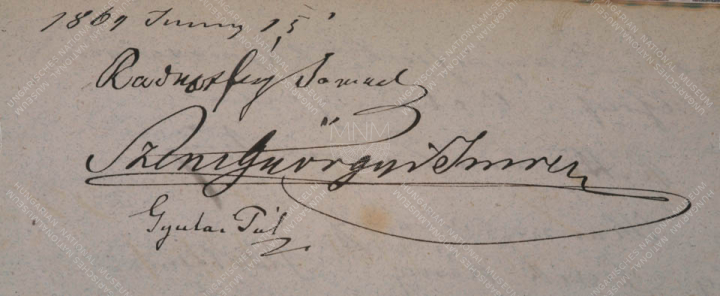 1869 Juny 15
Radnotfáy Samuel
SzentGyörgyi Imre
Gyulai Pál
MNM
HUNGARIAN NATIONAL MUSEUM
MAGYAR NEMZETI MÚZEUM